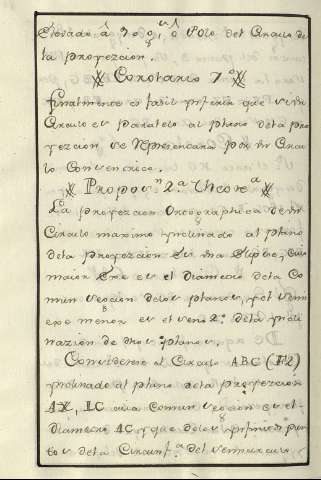 Elevado, á 90 g. ó Polo del Circulo de
la proyeccion.
Corolario 7º
finalmente es facil inferir que un
Circulo es paralelo al plano dela pro
yeccion, se representara por un Circu
lo Concentrico.
Propos.n 2.a Theore.a
La proyeccion Orthographica de un
Circulo maximo inclinado al plano
dela proyeccion es una Elipse, cuio
maior Exe es el diametro dela Co
mun seccion delos planos, y el semi
exe menor es el seno 2.º dela incli
nazion de dhos planos.
Considerese el Circulo ABC (F2)
inclinado al plano dela proyeccion
cuia Comun seccion es el
diametro AC, y que delos infinitos pun
tos dela Circunf.a del semicirculo